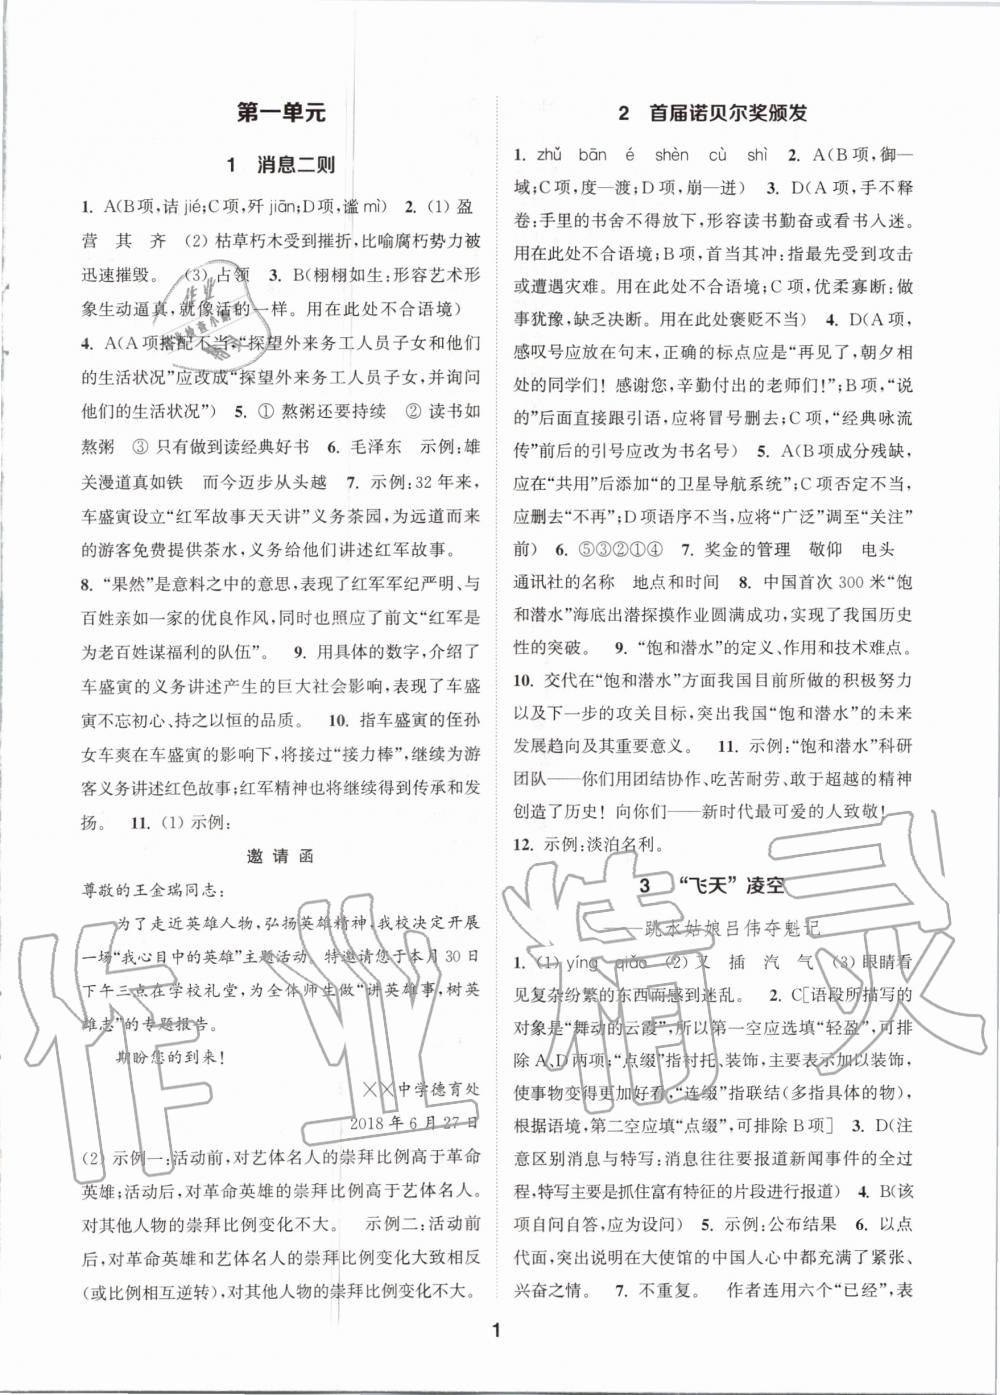 第一单元
1 消息二则
1. A(B项,诘jié;C项,歼jiān;D项,谧mì) 2. (1) 盈
营 其 齐 (2) 枯草朽木受到摧折,比喻腐朽势力被
迅速摧毁。 (3) 占领 3. B(栩栩如生:形容艺术形
象生动逼真,就像活的一样。用在此处不合语境)
4. A(A项搭配不当,“探望外来务工人员子女和他们
的生活状况”应改成“探望外来务工人员子女,并询问
他们的生活状况”) 5. ① 熬粥还要持续 ② 读书如
熬粥 ③ 只有做到读经典好书 6. 毛泽东 示例:雄
关漫道真如铁 而今迈步从头越 7. 示例:32年来,
车盛寅设立“红军故事天天讲”义务茶园,为南来北往
的游客免费提供茶水,义务给他们讲述红军故事。
8. “果然”是意料之中的意思,表现了红军军纪严明、与
百姓亲如一家的优良作风,同时也照应了前文“红军是
为老百姓谋福利的队伍”。 9. 用具体的数字,介绍了
车盛寅的义务讲述产生的巨大社会影响,表现了车盛
寅不忘初心、持之以恒的品质。 10. 指车盛寅的侄孙
女车爽在车盛寅的影响下,将接过“接力棒”,继续为游
客义务讲述红色故事;红军精神也将继续得到传承和发
扬。 11. (1) 示例:
邀 请 函
尊敬的王金瑞同志:
为了走近英雄人物,弘扬英雄精神,我校决定开展
一场“我心目中的英雄”主题活动。特邀请您于本月30日
下午三点在学校礼堂,为全体师生做“讲英雄事,树英
雄志”的专题报告。
期盼您的到来!
××中学德育处
2018年6月27日
(2) 示例一:活动前,对艺体名人的崇拜比例高于革命
英雄;活动后,对革命英雄的崇拜比例高于艺体名人。
对其他人物的崇拜比例变化不大。 示例二:活动前
后,对革命英雄和艺体名人的崇拜比例变化大致相反
(或比例相互逆转),对其他人物的崇拜比例变化不大。
2 首届诺贝尔奖颁发
1. zhǔ bān é shèn cù shì 2. A(B项,御—
域;C项,度—渡;D项,崩—迸) 3. D(A项,手不释
卷:手里的书舍不得放下,形容读书勤奋或看书入迷。
用在此处不合语境;B项,首当其冲:指最先受到攻击
或遭遇灾难。用在此处不合语境;C项,优柔寡断:做
事犹豫,缺乏决断。用在此处褒贬不当) 4. D(A项,
感叹号应放在句末,正确的标点应是“再见了,朝夕相
处的同学们! 感谢您,辛勤付出的老师们!”;B项,“说
的”后面直接跟引语,应将冒号删去;C项,“经典咏流
传”前后的引号应改为书名号) 5. A(B项成分残缺,
应在“共用”后加上“的卫星导航系统”;C项否定不当,
应删去“不再”;D项语序不当,应将“广泛”调至“关注”
前) 6. ⑤③②①④ 7. 奖金的管理 敬仰 电头
通讯社的名称 地点和时间 8. 中国首次300米“饱
和潜水”海底出潜探摸作业圆满成功,实现了我国历史
性的突破。 9. “饱和潜水”的定义、作用和技术难点。
10. 交代在“饱和潜水”方面我国目前所做的积极努力
以及下一步的攻关目标,突出我国“饱和潜水”的未来
发展趋向及其重要意义。 11. 示例:“饱和潜水”科研
团队——你们用团结协作、吃苦耐劳、敢于超越的精神
创造了历史! 向你们——新时代最可爱的人致敬!
12. 示例:淡泊名利。
3 “飞天”凌空
——跳水姑娘吕伟夺魁记
1. (1) yíng qiǎo (2) 叉 插 汽 气 (3) 眼睛看
见复杂纷繁的东西而感到迷乱。 2. C[语段所描写的
对象是“舞动的云霞”,所以第一空应选填“轻盈”,可排
除A、D两项;“点缀”指衬托、装饰,主要表示加以装饰,
使事物变得更加好看,“连缀”指联结(多指具体的物),
根据语境,第二空应填“点缀”,可排除B项] 3. D(注
意区别消息与特写:消息往往要报道新闻事件的全过
程,特写主要是抓住富有特征的片段进行报道) 4. B(该
项自问自答,应为设问) 5. 示例:公布结果 6. 以点
代面,突出表现在大使馆的中国人心中都充满了紧张、
兴奋之情。 7. 不重复。 作者连用六个“已经”,表
1
作业精灵
作业